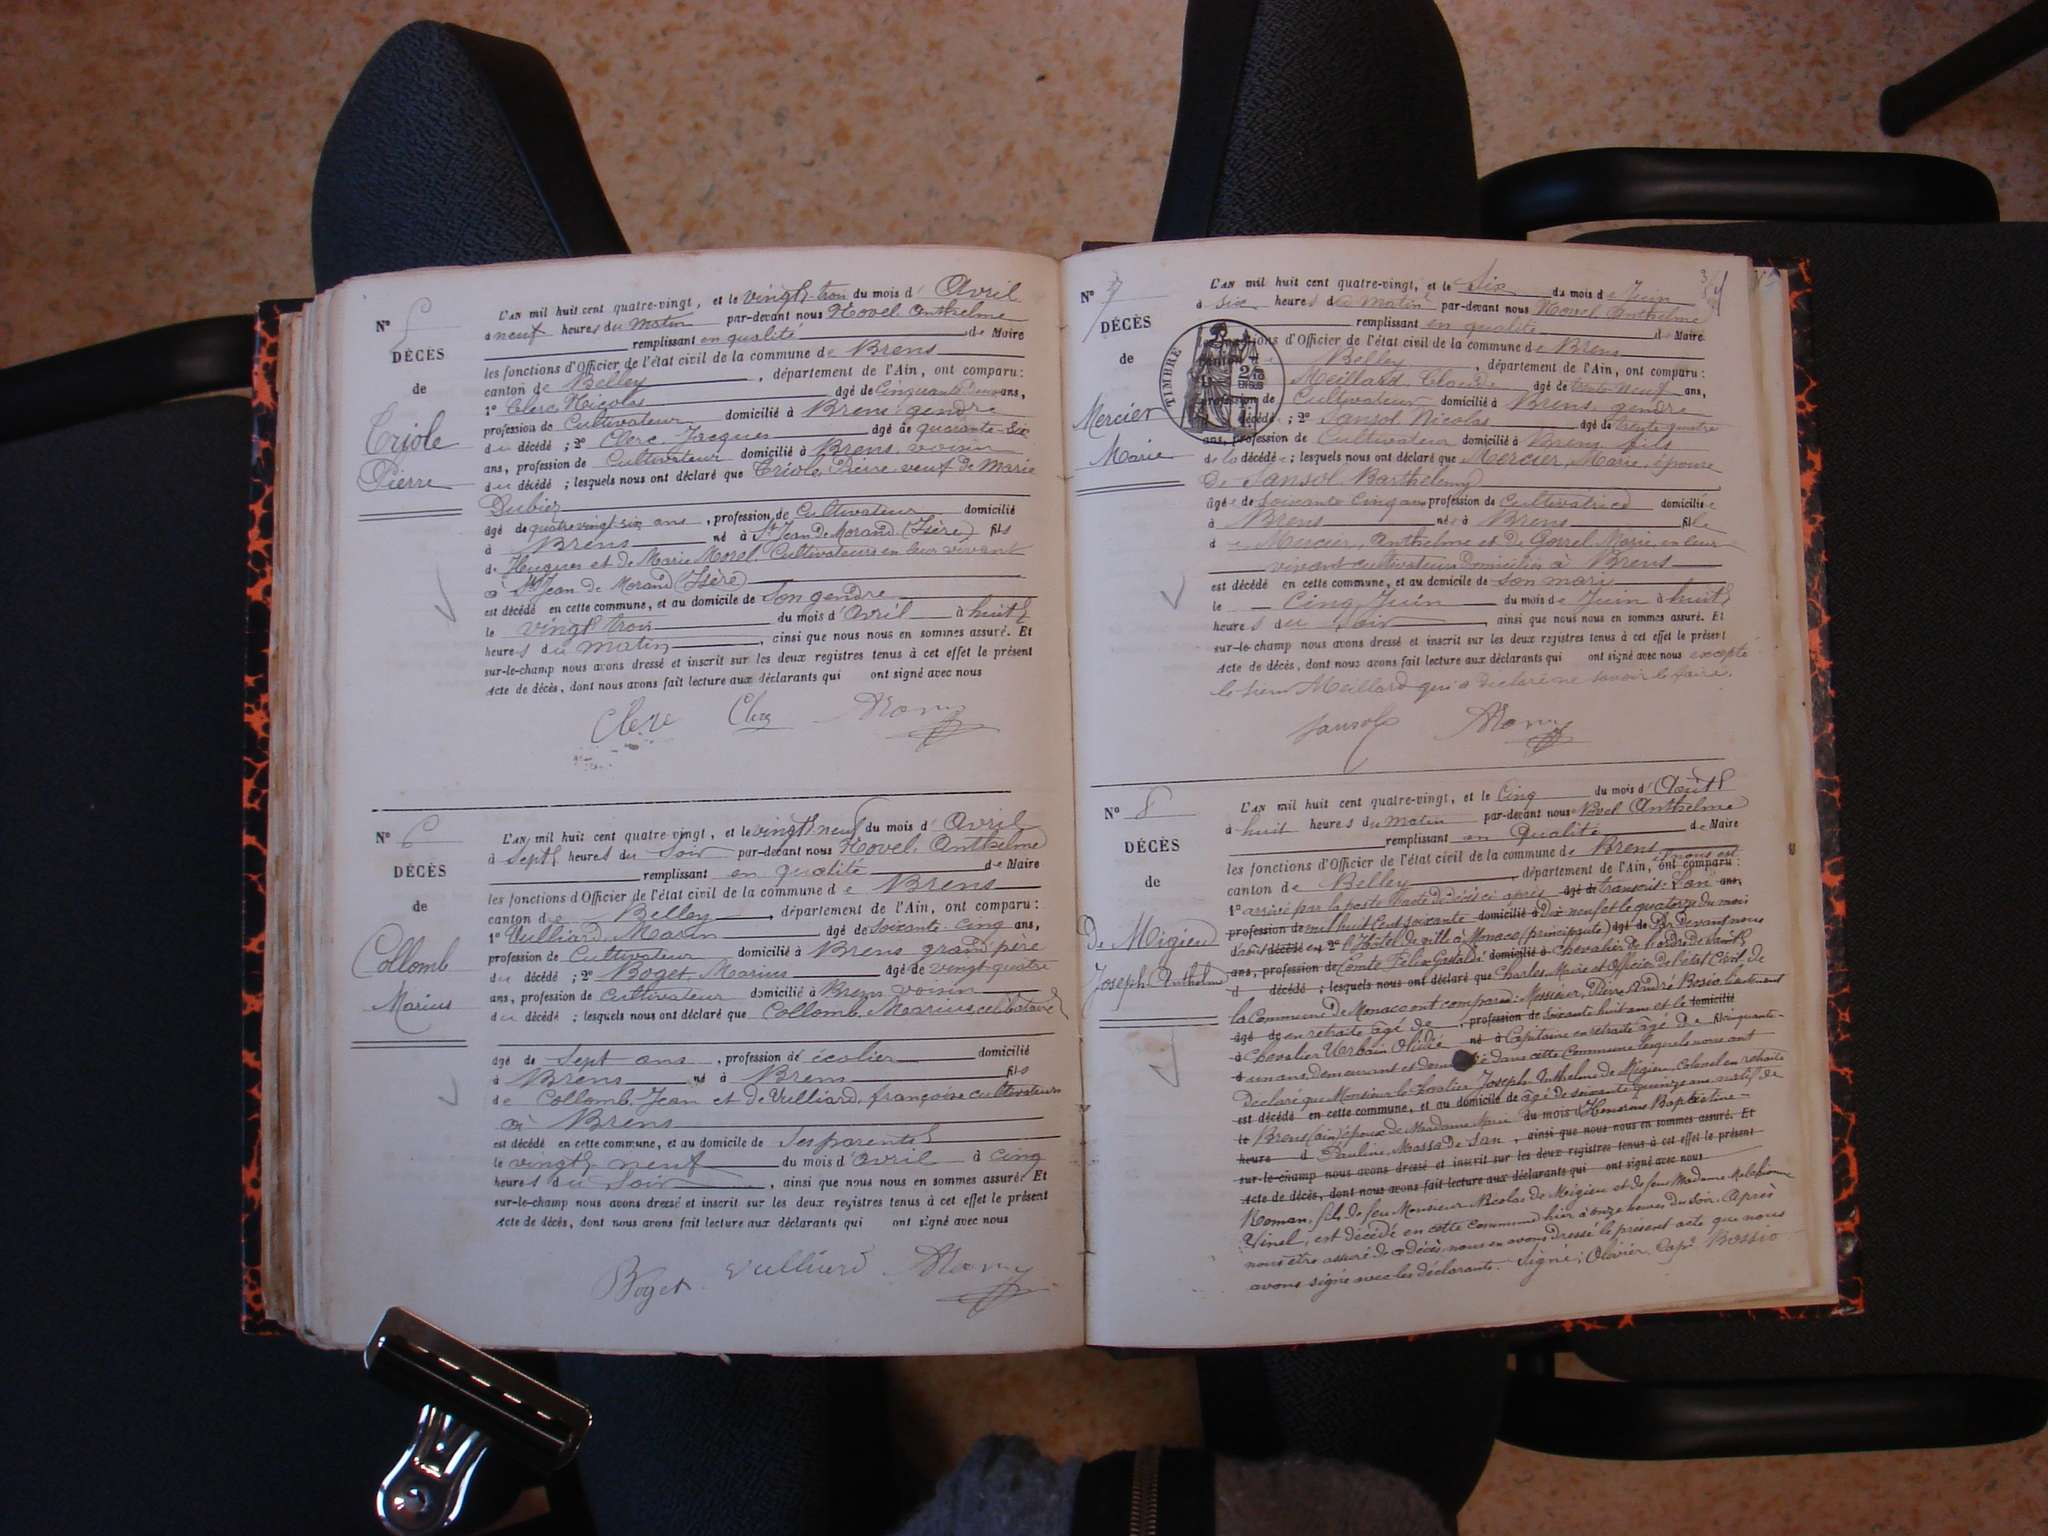 N° 5
DÉCÈS
de
Criole
Pierre
L'AN mil huit cent quatre-vingt, et le vingt-trois du mois d'Avril
à neuf heures du matin par-devant nous Novel Anthelme
remplissant en qualité de Maire
les fonctions d'Officier de l'état civil de la commune de Brens
canton de Belley, département de l'Ain, ont comparu :
1° Clerc Nicolas âgé de Cinquante deux ans,
profession de Cultivateur domicilié à Brens, gendre
du décédé ; 2° Clerc Jacques âgé de quarante-six
ans, profession de Cultivateur domicilié à Brens, voisin
du décédé ; lesquels nous ont déclaré que Criole Pierre veuf de Marie
Dubiez
âgé de quatre vingt six ans, profession de Cultivateur domicilié
à Brens né à St Jean de Morand (Isère) fils
de Hugues et de Marie Morel, Cultivateurs en leur vivant
à St Jean de Morand (Isère)
est décédé en cette commune, et au domicile de son gendre
le vingt trois du mois d'Avril à huit
heures du matin, ainsi que nous nous en sommes assuré. Et
sur-le-champ nous avons dressé et inscrit sur les deux registres tenus à cet effet le présent
Acte de décès, dont nous avons fait lecture aux déclarants qui ont signé avec nous
Clerc Clerc
N° 6
DÉCÈS
de
Collomb
Marius
L'AN mil huit cent quatre-vingt, et le vingt neuf du mois d'Avril
à sept heures du Soir par-devant nous Novel Anthelme
remplissant en qualité de Maire
les fonctions d'Officier de l'état civil de la commune de Brens
canton de Belley, département de l'Ain, ont comparu :
1° Vulliard Marin âgé de soixante-cinq ans,
profession de Cultivateur domicilié à Brens grand père
du décédé ; 2° Boget Marius âgé de vingt-quatre
ans, profession de Cultivateur domicilié à Brens voisin
du décédé ; lesquels nous ont déclaré que Collomb Marius célibataire
âgé de sept ans, profession de écolier domicilié
à Brens né à Brens fils
de Collomb Jean et de Vulliard, françoise cultivateurs
à Brens
est décédé en cette commune, et au domicile de ses parents
le vingt neuf du mois d'avril à cinq
heures du Soir, ainsi que nous nous en sommes assuré. Et
sur-le-champ nous avons dressé et inscrit sur les deux registres tenus à cet effet le présent
Acte de décès, dont nous avons fait lecture aux déclarants qui ont signé avec nous
Boget Vulliard
N° 7
DÉCÈS
de
Mercier
Marie
TIMBRE
L'AN mil huit cent quatre-vingt, et le Six du mois de Juin
à six heures du Matin par-devant nous Novel Anthelme
remplissant en qualité de Maire
les fonctions d'Officier de l'état civil de la commune de Brens
canton de Belley, département de l'Ain, ont comparu :
Meillard Claude âgé de trente neuf ans,
profession de Cultivateur domicilié à Brens, gendre
décédé ; 2° Sansol Nicolas âgé de trente quatre
ans, profession de Cultivateur domicilié à Brens, fils
de la décédée ; lesquels nous ont déclaré que Mercier, Marie, épouse
de Sansol Barthelemy
âgée de soixante cinq ans profession de Cultivatrice domiciliée
à Brens née à Brens fille
de Mercier, Anthelme et de Gorrel Marie, en leur
vivant cultivateurs domiciliés à Brens
est décédé en cette commune, et au domicile de son mari
le Cinq Juin du mois de Juin à huit
heures du Soir, ainsi que nous nous en sommes assuré. Et
sur-le-champ nous avons dressé et inscrit sur les deux registres tenus à cet effet le présent
Acte de décès, dont nous avons fait lecture aux déclarants qui ont signé avec nous excepté
le sieur Meillard qui a déclaré ne savoir le faire.
Sansol
N° 8
DÉCÈS
de
De Migieu
Joseph Anthelme
L'AN mil huit cent quatre-vingt, et le Cinq du mois d'Août
à huit heures du matin par-devant nous Novel Anthelme
remplissant en Qualité de Maire
les fonctions d'Officier de l'état civil de la commune de Brens il nous est
canton de Belley, département de l'Ain, ont comparu :
1° arrivé par la poste l'acte de décès ci après âgé de transcris. L'an ans,
profession de mil huit cent soixante domicilié à Dix neuf et le quatorze du mois
d'août décédé en 2° l'Hôtel de ville à Monaco (principauté) âgé de Par devant nous
ans, profession de Comte Félix Gastaldi domicilié à Chevalier de l'ordre de Saint
d décédé ; lesquels nous ont déclaré que Charles, Maire et Officier de l'état Civil de
la Commune de Monaco ont comparu : Messieurs, Pierre André Bosio lieutenant
âgé de en retraite âgé de, profession de soixante huit ans et le domicilié
à Chevalier Urbain Olivié né à Capitaine en retraite âgé de fil cinquante-
d un ans, demeurant et dans cette Commune lesquels nous ont
Déclaré que Monsieur le Joseph Anthelme de Migieu Colonel en retraite
est décédé en cette commune, et au domicile de âgé de soixante quinze ans natif de
le Brens (ain) époux de Madame Marie du mois d Honorine Baptistine
heure d Pauline Massa de San, ainsi que nous nous en sommes assuré. Et
sur-le-champ nous avons dressé et inscrit sur les deux registres tenus à cet effet le présent
Acte de décès, dont nous avons fait lecture aux déclarants qui ont signé avec nous
Roman, fils de feu Monsieur Nicolas de Meigieu et de feu Madame
Vinel, est décédé en cette commune hier à onze heures du soir. Après
nous être assuré de ce décès, nous en avons dressé le présent acte que nous
avons signé avec les déclarants. Signé, Olivier, Capne Bossio